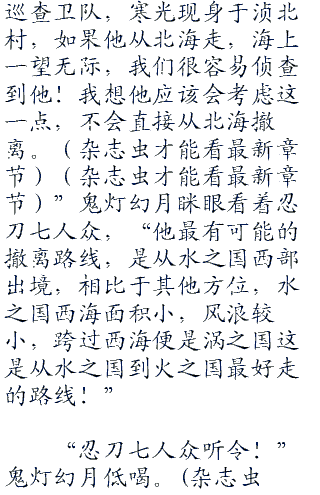 巡查卫队，寒光现身于浈北
村，如果他从北海走，海上
一望无际，我们很容易侦查
到他！我想他应该会考虑这
一点，不会直接从北海撤
离。（杂志虫才能看最新章
节）（杂志虫才能看最新章
节）”鬼灯幻月眯眼看着忍
刀七人众，“他最有可能的
撤离路线，是从水之国西部
出境，相比于其他方位，水
之国西海面积小，风浪较
小，跨过西海便是涡之国这
是从水之国到火之国最好走
的路线！”
“忍刀七人众听令！”
鬼灯幻月低喝。(杂志虫